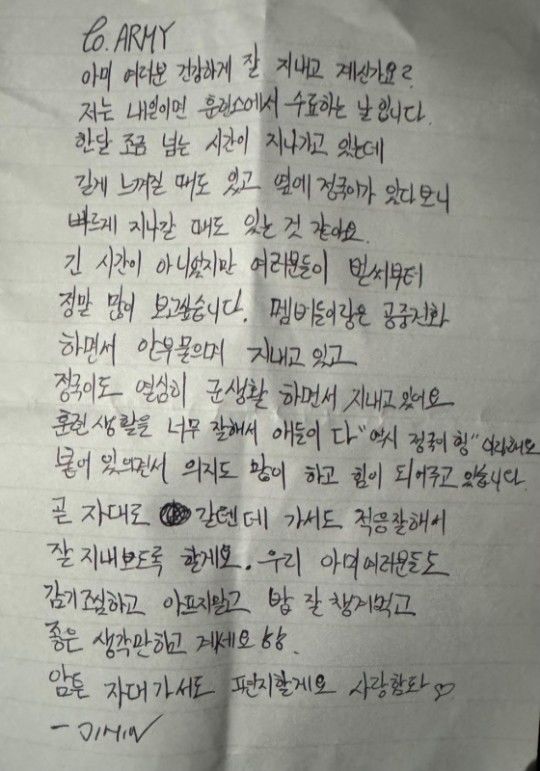 to. ARMY
아미 여러분 건강하게 잘 지내고 계신가요?
저는 내일이면 훈련소에서 수료하는 날 입니다.
한달 조금 넘는 시간이 지나가고 있는데
길게 느껴질 때도 있고 옆에 정국이가 있다보니
빠르게 지나갈 때도 있는 것 같아요.
긴 시간이 아니였지만 여러분들이 벌써부터
정말 많이 보고싶습니다. 멤버들이랑은 공중전화
하면서 안부물으며 지내고 있고
정국이도 열심히 군생활 하면서 지내고 있어요
훈련 생활을 너무 잘해서 애들이 다 "역시 정국이 형" 이라해요
붙어 있으면서 의지도 많이 하고 힘이 되어주고 있습니다.
곧 자대로 갈텐데 가서도 적응잘해서
잘 지내보도록 할게요. 우리 아미여러분들도
감기조심하고 아프지말고 밥 잘 챙겨먹고
좋은 생각만하고 계세요 ㅎㅎ.
암튼 자대가서도 편지할게요 사랑합니다 ♡
- JIMIN